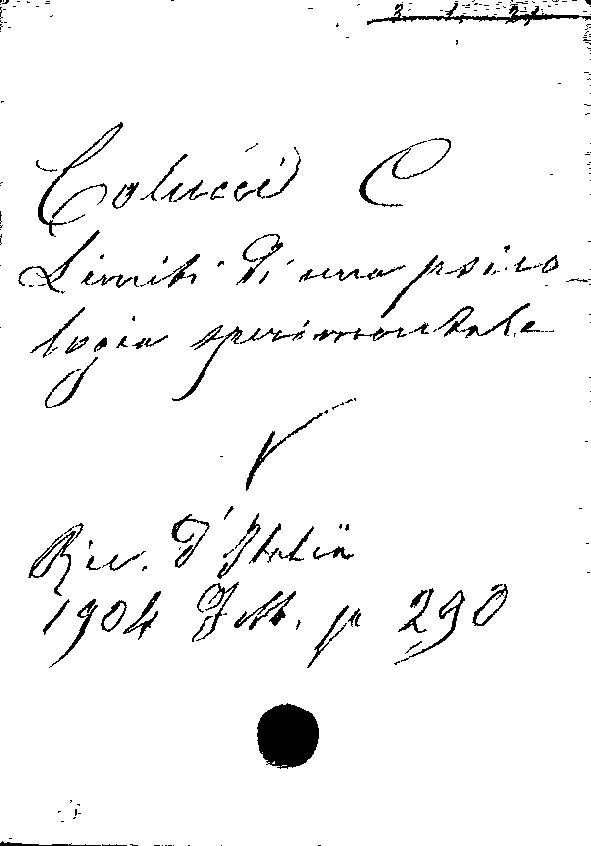 Colucci C
Limiti di una psico-
logia sperimentale
Riv. d'Italia
1904 Febb. p 290